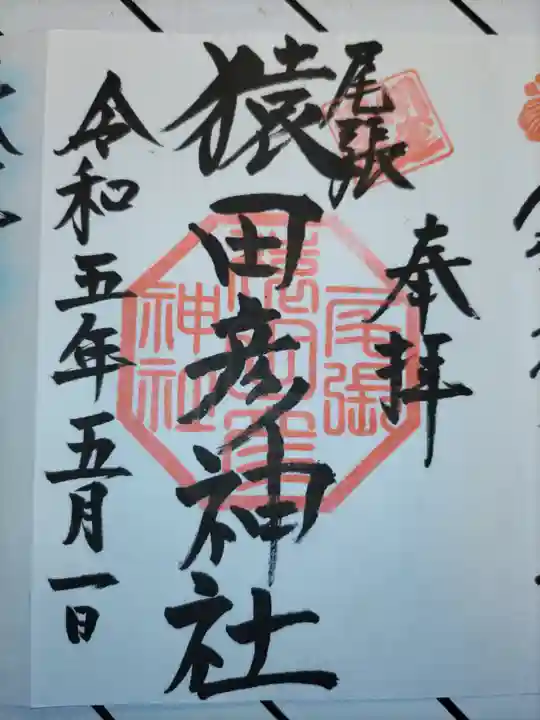 奉拝
尾張
猿田彦神社
尾張
猿田彦
神社
令和五年五月一日